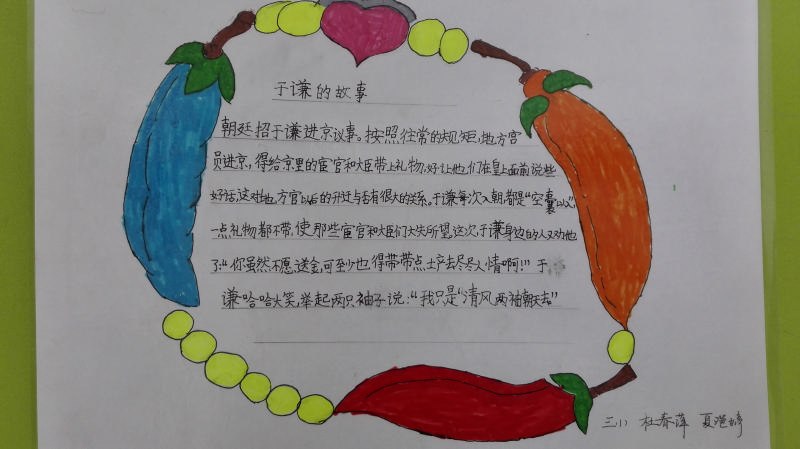 于谦的故事
朝廷招于谦进京议事。按照往常的规矩,地方官
员进京,得给京里的宦官和大臣带上礼物,好让他们在皇上面前说些
好话,这对地方官以后的升迁与否有很大的关系。于谦每次入朝都是“空囊以入”
一点礼物都不带,使那些宦官和大臣们大失所望。这次,于谦身边的人又劝他
了:“你虽然不愿送金,可至少也得带带点土产去尽尽人情啊!”于
谦哈哈大笑,举起两只袖子说:“我只是“清风两袖朝天去”
三(1) 杜春萍 夏